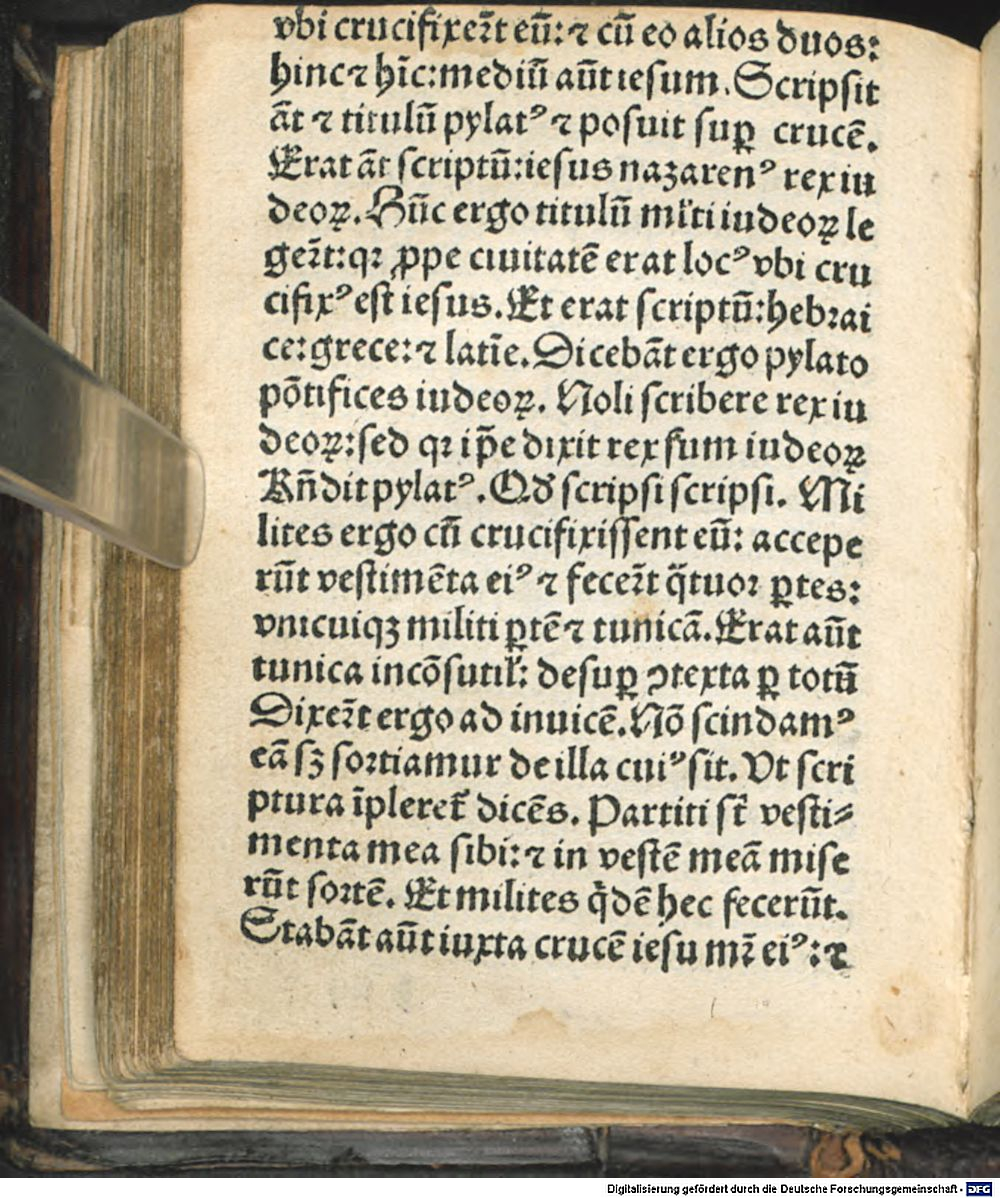 vbi crucifixer̄t eū: ⁊ cū eo alios duos:
hinc ⁊ hīc: mediū aūt iesum. Scripsit
āt ⁊ titulū pylatꝰ ⁊ posuit suꝑ crucē.
Erat āt scriptū: iesus nazarenꝰ rex iu
deoꝝ. Hūc ergo titulū ml̄ti iudeoꝝ le
ger̄t: qꝛ ꝓpe ciuitatē erat locꝰ vbi cru
cifixꝰ est iesus. Et erat scriptū: hebꝛai
ce: grece: ⁊ latīe. Dicebāt ergo pylato
pōtifices iudeoꝝ. Noli scribere rex iu
deoꝝ: sed qꝛ ip̄e dixit rex sum iudeoꝝ
Rn̄dit pylatꝰ. Qđ scripsi scripsi. Mi
lites ergo cū crucifixissent eū: accepe
rūt vestimēta eiꝰ ⁊ fecer̄t q̄tuoꝛ ꝑtes:
vnicuiqꝫ militi ꝑtē ⁊ tunicā. Erat aūt
tunica incōsutil̄: desuꝑ ꝯtexta ꝑ totū
Dixer̄t ergo ad inuicē. Nō scindamꝰ
eā sꝫ soꝛtiamur de illa cuiꝰ sit. Ut scri
ptura īpleret̄ dicēs. Partiti st̄ vesti⸗
menta mea sibi: ⁊ in vestē meā mise
rūt soꝛtē. Et milites q̇dē hec fecerūt.
Stabāt aūt iuxta crucē iesu mr̄ eiꝰ: ⁊
Digitalisierung gefördert durch die Deutsche Forschungsgemeinschaft - DFG